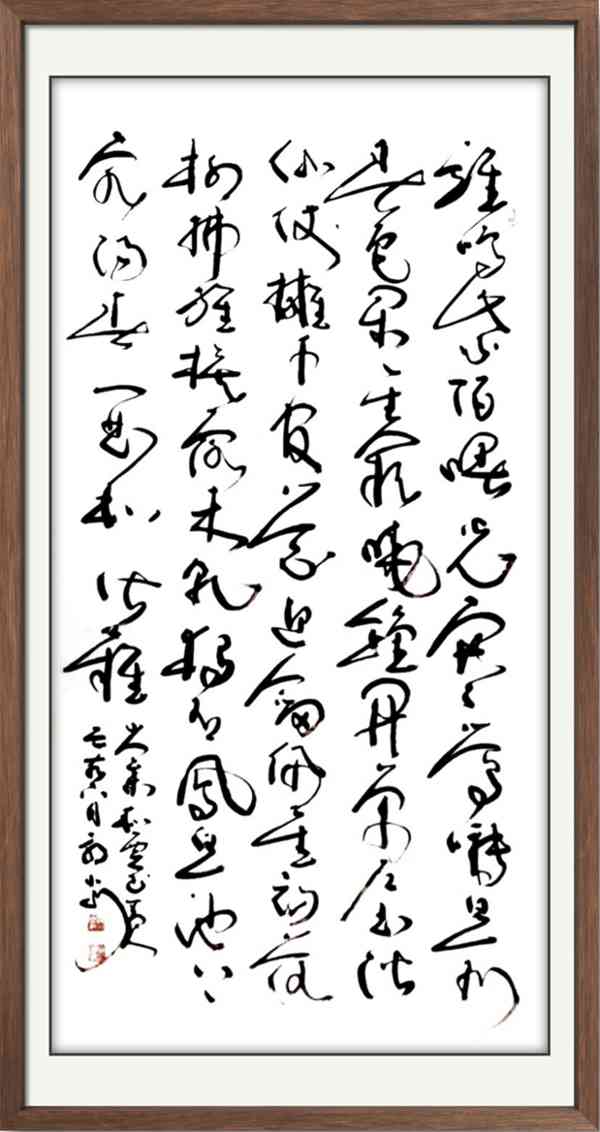 雞鳴紫陌曙光寒鶯囀皇州
春色闌金闕曉鐘開萬戶玉階
仙仗擁千官花迎劍佩星初落
柳拂旌旗露未乾獨有鳳凰池上
客陽春一曲和皆難
六月